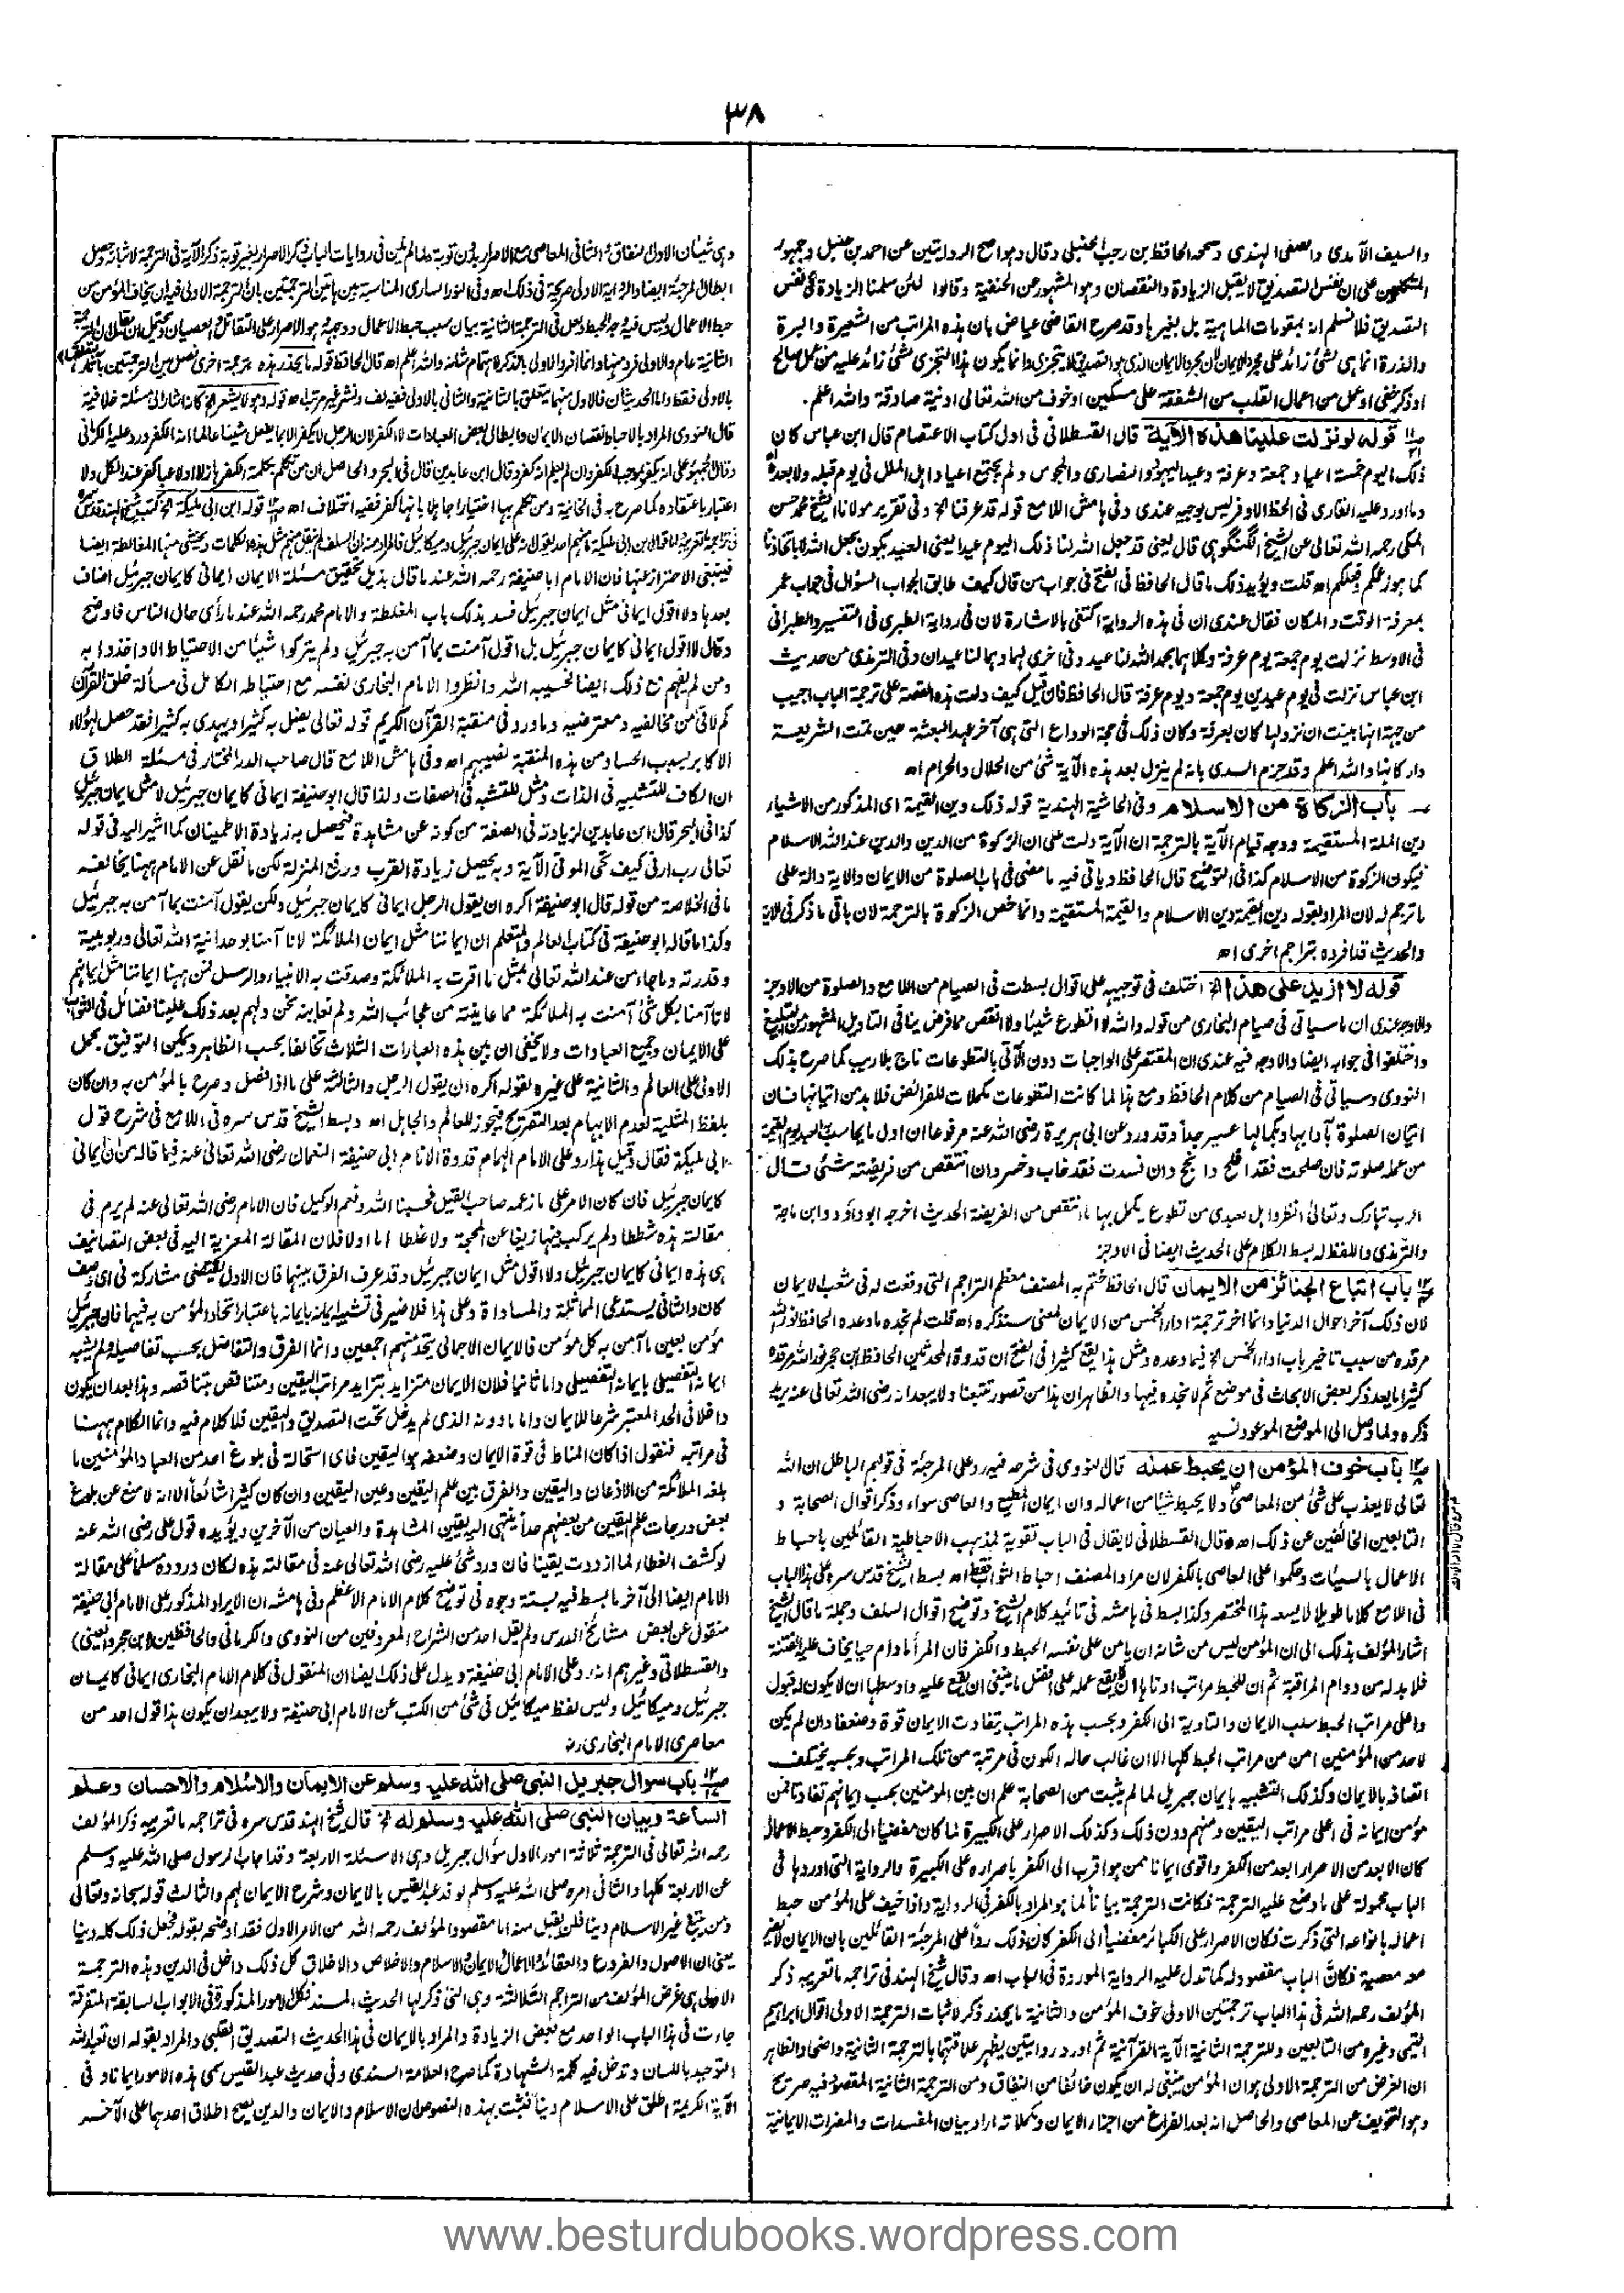 ٣٨
والسيف الآمدى والصفى الهندى وصححه الحافظ بن رجب الحنبلى وقال وهو اصح الروايتين عن احمد بن حنبل وجمهور
المتكلمين على ان نفس التصديق لا يقبل الزيادة والنقصان وهو المشهور من الحنفية وقالوا لئن سلمنا الزيادة فى نفس
التصديق فلا نسلم انه بمقومات الماهية بل بغيرها وقد صرح القاضى عياض بان هذه المراتب من الشعيرة والبرة
والذرة انما هى بشئ زائد على مجرد الايمان لان مجرد الايمان الذى هو التصديق لا يتجزى وانما يكون هذا التجزى بشئ زائد عليه من عمل صالح
او ذكر خفى او عمل من اعمال القلب من الشفقة على مسكين او خوف من الله تعالى او نية صادقة والله اعلم.
قوله لو نزلت علينا هذه الآية قال القسطلانى فى اول كتاب الاعتصام قال ابن عباس كان
ذلك اليوم خمسة اعياد جمعة وعرفة وعيد اليهود والنصارى والمجوس ولم يجتمع اعياد اهل الملل فى يوم قبله ولا بعده
وما اورد عليه القارى فى الحظ الاوفر ليس بوجيه عندى وفى هامش اللامع قوله قد عرفنا الخ وفى تقرير مولانا الشيخ محمد حسن
المكى رحمه الله تعالى عن الشيخ الگنگوهى قال يعنى قد جعل الله لنا ذلك اليوم عيدا يعنى العيد يكون بجعل الله لا باتخاذنا
كما هو زعمكم وفعلكم اه قلت ويؤيد ذلك ما قال الحافظ فى الفتح فى جواب من قال كيف طابق الجواب السؤال فى جواب عمر
بمعرفة الوقت والمكان فقال عندى ان فى هذه الرواية اكتفى بالاشارة لان فى رواية الطبرى فى التفسير والطبرانى
فى الاوسط نزلت يوم جمعة يوم عرفة وكلاهما بحمد الله لنا عيد وفى اخرى لهما وهما لنا عيدان وفى الترمذى من حديث
ابن عباس نزلت فى يوم عيدين يوم جمعة ويوم عرفة قال الحافظ فان قيل كيف دلت هذه القصة على ترجمة الباب اجيب
من جهة انها بينت ان نزولها كان بعرفة وكان ذلك فى حجة الوداع التى هى آخر عهد البعثة حين تمت الشريعة
واركانها والله اعلم وقد جزم السدى بانه لم ينزل بعد هذه الآية شئ من الحلال والحرام اه
باب الزكاة من الاسلام وفى الحاشية الهندية قوله ذلك دين القيمة اى المذكور من الاشياء
دين الملة المستقيمة ووجه قيام الآية بالترجمة ان الآية دلت على ان الزكوة من الدين والدين عند الله الاسلام
فيكون الزكوة من الاسلام كذا فى التوضيح قال الحافظ وياتى فيه ما مضى فى باب الصلوة من الايمان والآية دالة على
ما ترجم له لان المراد بقوله دين القيمة دين الاسلام والقيمة المستقيمة وانما خص الزكوة بالترجمة لان باقى ما ذكر فى الآية
والحديث قد افرده بتراجم اخرى اه
قوله لا ازيد على هذا الخ اختلف فى توجيهه على اقوال بسطت فى الصيام من اللامع والصلوة من الاوجز
والاوجه عندى ان ما سياتى فى صيام البخارى من قوله والله لا اتطوع شيئا ولا انقص مما فرض ينافى التاويل المشهور من التبليغ
واختلفوا فى جوابه ايضا والاوجه فيه عندى ان المقتصر على الواجبات دون الآتى بالتطوعات ناج بلا ريب كما صرح بذلك
النووى وسياتى فى الصيام من كلام الحافظ ومع هذا لما كانت التطوعات مكملات للفرائض فلا بد من اتيانها فان
اتيان الصلوة بآدابها وكمالها عسير جدا وقد ورد عن ابى هريرة رضى الله عنه مرفوعا ان اول ما يحاسب به العبد يوم القيمة
من عمله صلوته فان صلحت فقد افلح وانجح وان فسدت فقد خاب وخسر وان انتقص من فريضته شئ قال
الرب تبارك وتعالى انظروا هل لعبدى من تطوع يكمل بها ما انتقص من الفريضة الحديث اخرجه ابو داؤد وابن ماجة
والترمذى واللفظ له بسط الكلام على الحديث ايضا فى الاوجز
باب اتباع الجنائز من الايمان قال الحافظ ختم به المصنف معظم التراجم التى وقعت له فى شعب الايمان
لان ذلك آخر احوال الدنيا وانما اخر ترجمة اداء الخمس من الايمان لمعنى سنذكره اه قلت لم نجده ما وعده الحافظ نور الله
مرقده من سبب تاخير باب اداء الخمس الخ فيما وعده ومثل هذا يقع كثيرا فى الفتح ان قدوة المحدثين الحافظ ابن حجر نور الله مرقده
كثيرا ما يعد ذكر بعض الابحاث فى موضع ثم لا نجده فيها والظاهر ان هذا من قصور تتبعنا ولا يبعد انه رضى الله تعالى عنه يريد
ذكره ولما وصل الى الموضع الموعود نسيه
باب خوف المؤمن ان يحبط عمله قال النووى فى شرحه فيه رد على المرجئة فى قولهم الباطل ان الله
تعالى لا يعذب على شئ من المعاصى ولا يحبط شيئا من اعماله وان ايمان المطيع والعاصى سواء وذكر اقوال الصحابة و
التابعين الخائفين عن ذلك اه وقال القسطلانى لا يقال فى الباب تقوية لمذهب الاحباطية القائلين باحباط
الاعمال بالسيئات وحكموا على العاصى بالكفر لان مراد المصنف احباط الثواب فقط اه بسط الشيخ قدس سره على هذا الباب
فى اللامع كلاما طويلا لا يسعه هذا المختصر وكذا بسط فى هامشه فى تائيد كلام الشيخ وتوضيح اقوال السلف وجملة ما قال الشيخ
اشار المؤلف بذلك الى ان المؤمن ليس من شانه ان يامن على نفسه الحبط والكفر فان المرأ ما دام حيا يخاف عليه الفتنة
فلا بد له من دوام المراقبة ثم ان للحبط مراتب ادناها ان لا يقع عمله على افضل ما ينبغى ان يقع عليه واوسطها ان لا يكون له قبول
واعلى مراتب الحبط سلب الايمان والتاوية الى الكفر وبحسب هذه المراتب يتفاوت الايمان قوة وضعفا وان لم يكن
لاحد من المؤمنين امن من مراتب الحبط كلها الا ان غالب حاله الكون فى مرتبة من تلك المراتب وبحسبه يختلف
اتصافه بالايمان وكذلك التشبيه بايمان جبريل لما لم يثبت من الصحابة علم ان بين المؤمنين بحسب ايمانهم تفاوتا فمن
مؤمن ايمانه فى اعلى مراتب اليقين ومنهم دون ذلك وكذلك الاصرار على الكبيرة لما كان مفضيا الى الكفر وحبط الاعمال
كان الابعد من الاصرار ابعد من الكفر واقوى ايمانا ممن هو اقرب الى الكفر باصراره على الكبيرة والرواية التى اوردها فى
الباب محمولة على ما وضع عليه الترجمة فكانت الترجمة بيانا لما هو المراد بالكفر فى الرواية واذا خيف على المؤمن حبط
اعماله بانواعه التى ذكرت فكان الاصرار على الكبائر مفضيا الى الكفر كان ذلك ردا على المرجئة القائلين بان الايمان لا يضر
معه معصية فكأن الباب مقصود له كما تدل عليه الرواية الموردة فى الباب اه وقال شيخ الهند فى تراجمه ما تعريبه ذكر
المؤلف رحمه الله فى هذا الباب ترجمتين الاولى خوف المؤمن والثانية ما يحذر ذكر لاثبات الترجمة الاولى اقوال ابراهيم
التيمى وغيره من التابعين وللترجمة الثانية الآية القرآنية ثم اورد روايتين يظهر علاقتهما بالترجمة الثانية واضحا والظاهر
ان الغرض من الترجمة الاولى هو ان المؤمن ينبغى له ان يكون خائفا من النفاق ومن الترجمة الثانية المقصود فيه صريح
وهو التخويف عن المعاصى والحاصل انه بعد الفراغ من اجزاء الايمان ومكملاته اراد بيان المفسدات والمضرات الايمانية
وهى شيئان الاول النفاق والثانى المعاصى مع الاصرار بدون توبة ولما لم يكن فى روايات الباب ذكر الاصرار بغير توبة ذكر الآية فى الترجمة لاثباته وحصل
ابطال المرجئة ايضا والرواية الاولى صريحة فى ذلك اه وفى النور السارى المناسبة بين هاتين الترجمتين بان الترجمة الاولى فيه ان يخاف المؤمن من
حبط الاعمال وليس فيه وجه الحبط
الثانية عام والاولى فرد منها وانما افرد الاولى بالذكر لاهتمام شانه والله اعلم اه قال الحافظ قوله ما يحذر هذه ترجمة اخرى
بالاولى فقط واما الحديثان فالاول منهما يتعلق بالثانية والثانى بالاولى ففيه لف ونشر غير مرتب اه قوله وهو لا يشعر الخ كانه اشار الى مسئلة خلافية
قال النووى المراد بالاحباط نقصان الايمان وابطال بعض العبادات لا الكفر لان الرجل لا يكفر الا بما يفعل شيئا عالما انه الكفر ورد عليه الكرمانى
وقال الجمهور على انه يكفر بموجب الكفر وان لم يعلم انه كفر وقال ابن عابدين قال فى البحر والحاصل ان من تكلم بكلمة الكفر هازلا او لاعبا كفر عند الكل ولا
اعتبار باعتقاده كما صرح به فى الخانية ومن تكلم بها اختيارا جاهلا بانها كفر ففيه اختلاف اه قوله ابن ابى مليكة الخ كتب شيخ الهند قدس سره
فينبغى الاحتراز عنها فان الامام ابا حنيفة رحمه الله عند ما قال بذيل تحقيق مسئلة الايمان ايمانى كايمان جبرئيل اضاف
بعدها ولا اقول ايمانى مثل ايمان جبرئيل فسد بذلك باب المغلطة والامام محمد رحمه الله عند ما رأى حال الناس فاوضح
وقال لا اقول ايمانى كايمان جبرئيل بل اقول آمنت بما آمن به جبرئيل ولم يتركوا شيئا من الاحتياط الا واخذوا به
ومن لم يفهم مع ذلك ايضا فحسيبه الله وانظروا الامام البخارى نفسه مع احتياطه الكامل فى مسألة خلق القرآن
كم لاقى من مخالفيه ومعترضيه وما ورد فى منقبة القرآن الكريم قوله تعالى يضل به كثيرا ويهدى به كثيرا فقد حصل لهؤلاء
الاكابر بسبب الحساد من هذه المنقبة نصيبهم اه وفى هامش اللامع قال صاحب الدر المختار فى مسئلة الطلاق
ان الكاف للتشبيه فى الذات ومثل للتشبيه فى الصفات ولذا قال ابو حنيفة ايمانى كايمان جبرئيل لا مثل ايمان جبرئيل
كذا فى البحر قال ابن عابدين لزيادته فى الصفة من كونه عن مشاهدة فيحصل به زيادة الاطمينان كما اشير اليه فى قوله
تعالى رب ارنى كيف تحى الموتى الآية وبه يحصل زيادة القرب ورفع المنزلة لكن ما نقل عن الامام ههنا يخالفه
ما فى الخلاصة من قوله قال ابو حنيفة اكره ان يقول الرجل ايمانى كايمان جبرئيل ولكن يقول آمنت بما آمن به جبرئيل
وكذا ما قاله ابو حنيفة فى كتاب العالم والمتعلم ان ايماننا مثل ايمان الملائكة لانا آمنا بوحدانية الله تعالى وربوبيته
وقدرته وما جاء من عند الله تعالى بمثل ما اقرت به الملائكة وصدقت به الانبياء والرسل فمن ههنا ايماننا مثل ايمانهم
لانا آمنا بكل شئ آمنت به الملائكة مما عاينته من عجائب الله ولم نعاينه نحن ولهم بعد ذلك علينا فضائل فى الثواب
على الايمان وجميع العبادات ولا يخفى ان بين هذه العبارات الثلاث تخالفا بحسب الظاهر ويمكن التوفيق بحمل
الاولى على العالم والثانية على غيره لقوله اكره ان يقول الرجل والثالثة على ما اذا فصل وصرح بالمؤمن به وان كان
بلفظ المثلية لعدم الايهام بعد التصريح فيجوز للعالم والجاهل اه وبسط الشيخ قدس سره فى اللامع فى شرح قول
ابن ابى مليكة فقال وقيل هذا رد على الامام الهمام قدوة الانام ابى حنيفة النعمان رضى الله تعالى عنه فيما قاله من ان ايمانى
كايمان جبرئيل فان كان الامر على ما زعمه صاحب القيل فحسبنا الله ونعم الوكيل فان الامام رضى الله تعالى عنه لم يرم فى
مقالته هذه شططا ولم يركب فيها زيغا عن المحجة ولا غلطا اما اولا فلان المقالة المعزية اليه فى بعض التصانيف
هى هذه ايمانى كايمان جبرئيل ولا اقول مثل ايمان جبرئيل وقد عرف الفرق بينهما فان الاول يقتضى مشاركة فى اى وصف
كان والثانى يستدعى المماثلة والمساواة وعلى هذا فلا ضير فى تشبيه ايمانه بايمانه باعتبار اتحاد المؤمن به فيهما فان جبرئيل
مؤمن بعين ما آمن به كل مؤمن فالايمان الاجمالى يتحد منهم اجمعين وانما الفرق والتفاضل بحسب تفاصيله ولم يشبه
ايمانه التفصيلى بايمانه التفصيلى واما ثانيا فلان الايمان متزايد بتزايد مراتب اليقين ومتناقص بتناقصه وهذا بعد ان يكون
داخلا فى الحد المعتبر شرعا للايمان واما ما دونه الذى لم يدخل تحت التصديق واليقين فلا كلام فيه وانما الكلام ههنا
فى مراتبه فنقول اذا كان المناط فى قوة الايمان وضعفه هو اليقين فاى استحالة فى بلوغ احد من العباد المؤمنين ما
بلغه الملائكة من الاذعان واليقين والفرق بين علم اليقين وعين اليقين وان كان كثيرا شائعا الا انه لا منع عن بلوغ
بعض درجات علم اليقين من بعضهم حدا ينتهى اليه يقين المشاهدة والعيان من الآخرين ويؤيده قول على رضى الله عنه
لو كشف الغطاء لما ازددت يقينا فان ورد شئ عليه رضى الله تعالى عنه فى مقالته هذه لكان وروده مسلما على مقالة
الامام ايضا الى آخر ما بسط فيه بستة وجوه فى توضيح كلام الامام الاعظم وفى هامشه ان الايراد المذكور على الامام ابى حنيفة
منقول عن بعض مشايخ الدرس ولم يقل احد من الشراح المعروفين من النووى والكرمانى والحافظين (ابن حجر والعينى)
والقسطلانى وغيرهم انه رد على الامام ابى حنيفة ويدل على ذلك ايضا ان المنقول فى كلام الامام البخارى ايمانى كايمان
جبرئيل وميكائيل وليس لفظ ميكائيل فى شئ من الكتب عن الامام ابى حنيفة ولا يبعد ان يكون هذا قول احد من
معاصرى الامام البخارى رح
باب سوال جبريل النبى صلى الله عليه وسلم عن الايمان والاسلام والاحسان وعلم
الساعة وبيان النبى صلى الله عليه وسلم له الخ قال شيخ الهند قدس سره فى تراجمه ما تعريبه ذكر المؤلف
رحمه الله تعالى فى الترجمة ثلاثة امور الاول سؤال جبريل وهى الاسئلة الاربعة وقد اجاب الرسول صلى الله عليه وسلم
عن الاربعة كلها والثانى امره صلى الله عليه وسلم لوفد عبد القيس بالايمان وشرح الايمان لهم والثالث قوله سبحانه وتعالى
ومن يبتغ غير الاسلام دينا فلن يقبل منه اما مقصود المؤلف رحمه الله من الامر الاول فقد اوضحه بقوله فجعل ذلك كله دينا
يعنى ان الاصول والفروع والعقائد والاعمال والايمان والاسلام والاخلاص والاخلاق كل ذلك داخل فى الدين وهذه الترجمة
الاولى هى غرض المؤلف من التراجم الثلاثة وهى التى ذكر لها الحديث المسند فكل الامور المذكورة فى الابواب السابقة المتفرقة
جاءت فى هذا الباب الواحد مع بعض الزيادة والمراد بالايمان فى هذا الحديث التصديق القلبى والمراد بقوله ان تعبد الله
التوحيد باللسان وتدخل فيه كلمة الشهادة كما صرح العلامة السندى وفى حديث عبد القيس سمى هذه الامور ايمانا وفى
الآية الكريمة اطلق على الاسلام دينا فثبت بهذه النصوص ان الاسلام والايمان والدين يصح اطلاق احدها على الآخر
www.besturdubooks.wordpress.com